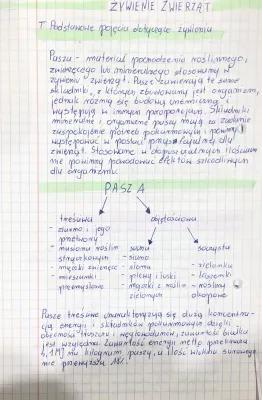 ŻYWIENIE ZWIERZĄT.
T: Podstawowe pojęcia dotyczące żywienia
Pasza - materiał pochodzenia roślinnego,
zwierzęcego lub mineralnego stosowany w
żywieniu zwierząt. Pasze zawierają te same
składniki, z których zbudowany jest organizm,
jednak różnią się budową chemiczną i
występują w innych proporcjach. Składniki
mineralne i organiczne paszy mają za zadanie
zaspokojenie potrzeb pokarmowych i powinny
występować w postaci przyswajalnej dla
zwierząt. Stosowane w dopuszczalnych ilościach
nie powinny powodować efektów szkodliwych
dla organizmu.
PASZA
treściwa objętościowa
- ziarno i jego
przetwory
- nasiona roślin sucha soczysta
strączkowych - siano
- mączki zwierzęce - słoma - zielonka
- mieszanki - plewy i łuski - kiszonki
przemysłowe - mączki z roślin - rośliny
zielonych okopowe
Pasze treściwe charakteryzują się dużą koncentra-
cją energii i składników pokarmowych dzięki
obecności tłuszczu i węglowodanów, zawartości białka
jest względna. Zawartość energii netto przekracza
4,1MJ na kilogram paszy, a ilość włókna surowego
nie przewyższa